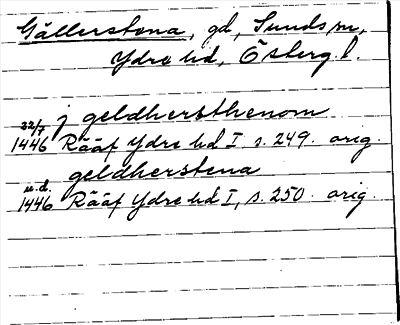 Gällerstena, gd, Sunds sn,
Ydre hd, Österg. l.
22/7 j geldhersthenom
1446 Rääf Ydre hd I s. 249. orig.
geldherstena
u.d. 1446 Rääf Ydre hd I, s. 250. orig.